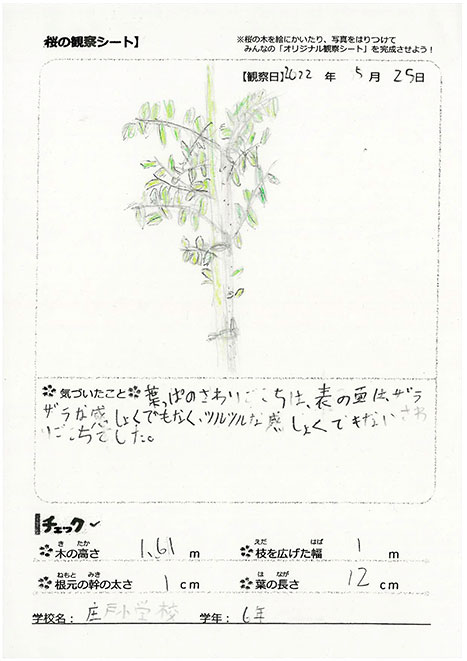 桜の観察シート】
※桜の木を絵にかいたり、写真をはりつけて
みんなの「オリジナル観察シート」を完成させよう！
【観察日】2022 年 5 月 25日
気づいたこと 葉っぱのさわりごこちは、表の面は、ザラ
ザラな感しょくでもなく、ツルツルな感しょくできないさわ
りごこちでした。
チェック
き たか
木の高さ 1.61 m
えだ はば
枝を広げた幅 1 m
ねもと みき
根元の幹の太さ 1 cm
は なが
葉の長さ 12 cm
学校名： 庄戸小学校 学年： 6年